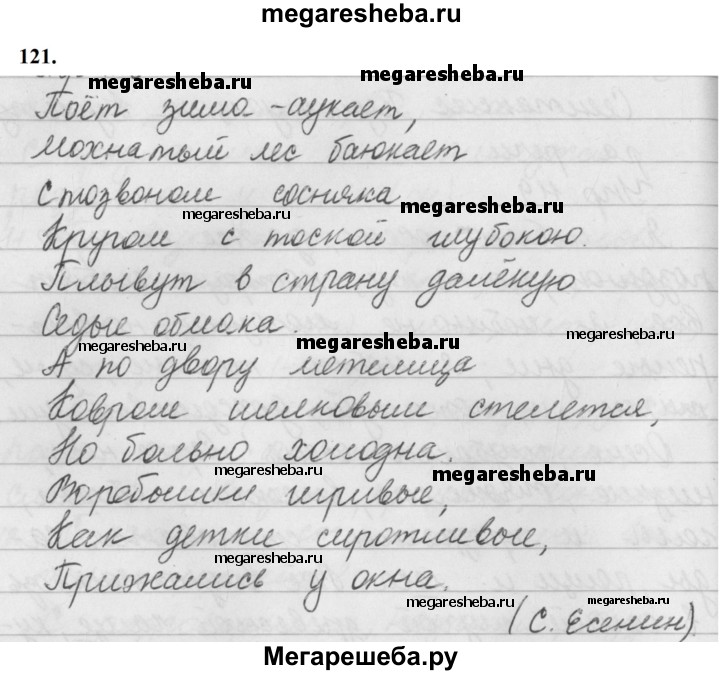 megaresheba.ru
121.
megaresheba.ru
megaresheba.ru
Поёт зима - аукает,
Мохнатый лес баюкает
Стозвоном сосняка
megaresheba.ru
megaresheba.ru
Кругом с тоской глубокою.
Плывут в страну далёкую
Седые облака.
megaresheba.ru
megaresheba.ru
megaresheba.ru
А по двору метелица
Ковром шелковым стелется,
Но больно холодна.
megaresheba.ru
megaresheba.ru
Воробышки игривые,
Как детки сиротливые,
megaresheba.ru
Прижались у окна.
megaresheba.ru
megaresheba.ru
(С. Есенин).
Мегарешеба.ру